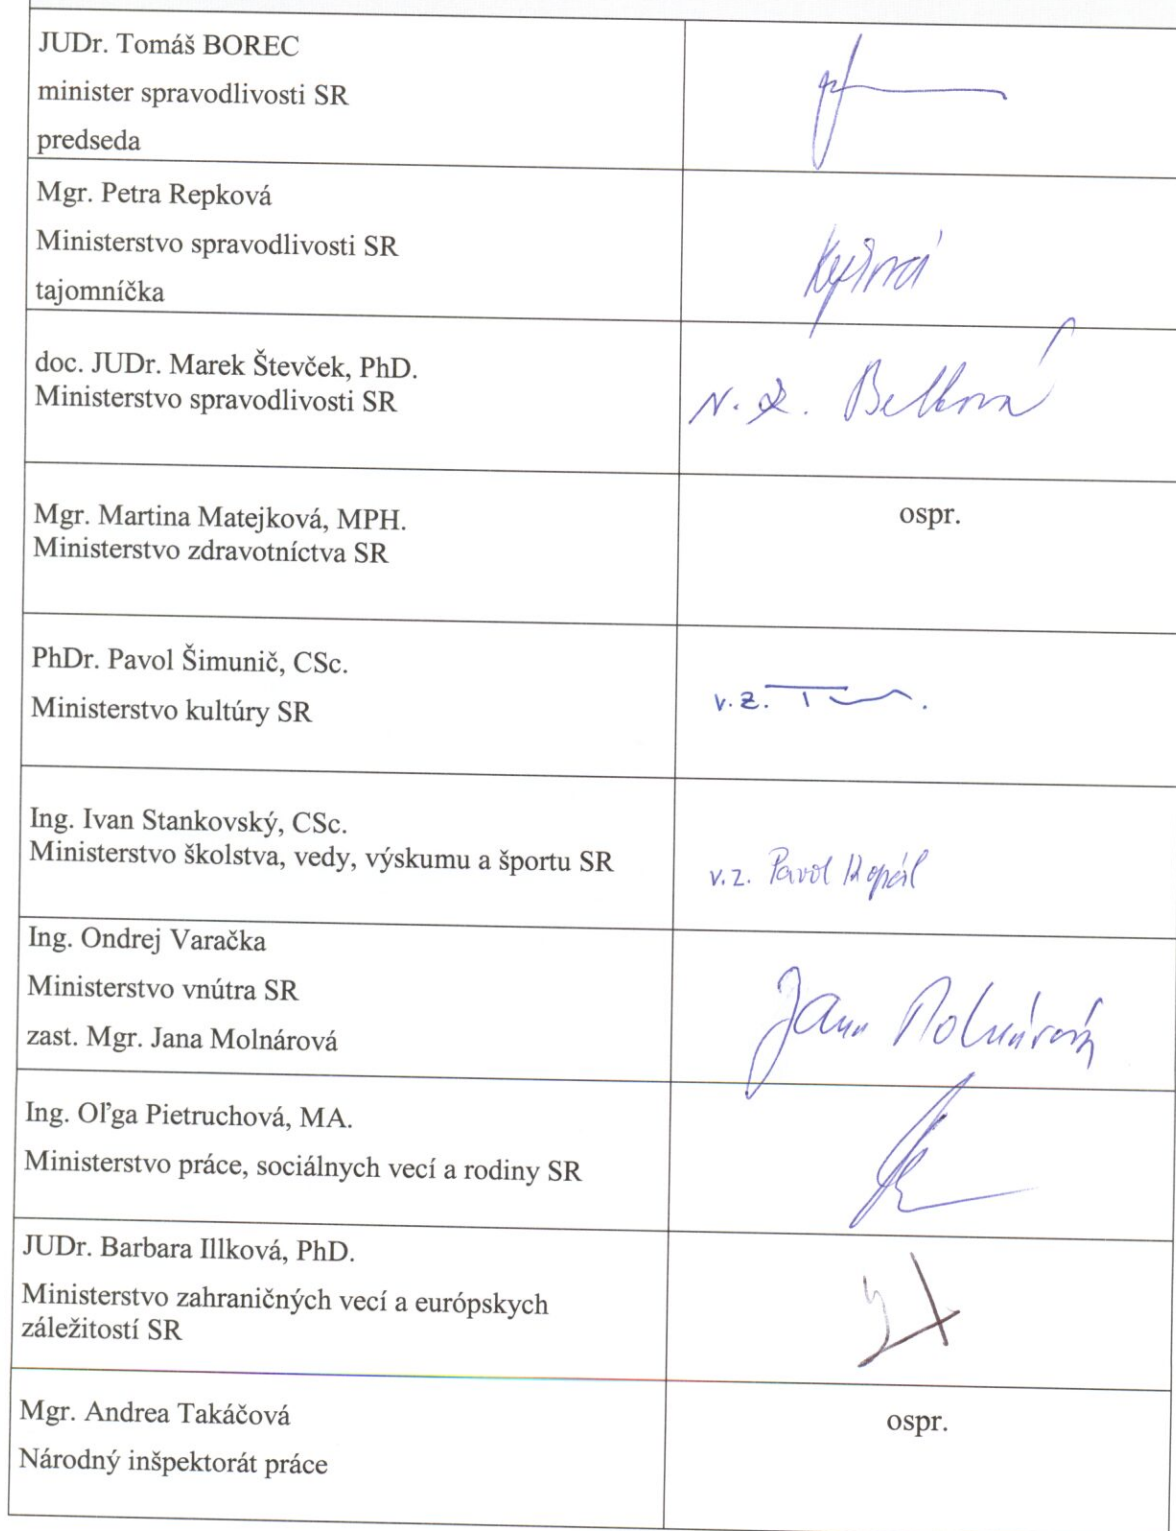 JUDr. Tomáš BOREC
minister spravodlivosti SR
predseda
Mgr. Petra Repková
Ministerstvo spravodlivosti SR
tajomníčka
doc. JUDr. Marek Števček, PhD.
Ministerstvo spravodlivosti SR
Mgr. Martina Matejková, MPH.
ospr.
Ministerstvo zdravotníctva SR
PhDr. Pavol Šimunič, CSc.
Ministerstvo kultúry SR
v.z.
Ing. Ivan Stankovský, CSc.
Ministerstvo školstva, vedy, výskumu a športu SR
v.z. Pavol
Ing. Ondrej Varačka
Ministerstvo vnútra SR
zast. Mgr. Jana Molnárová
Jana Molnárová
Ing. Oľga Pietruchová, MA.
Ministerstvo práce, sociálnych vecí a rodiny SR
JUDr. Barbara Illková, PhD.
Ministerstvo zahraničných vecí a európskych
záležitostí SR
Mgr. Andrea Takáčová
ospr.
Národný inšpektorát práce